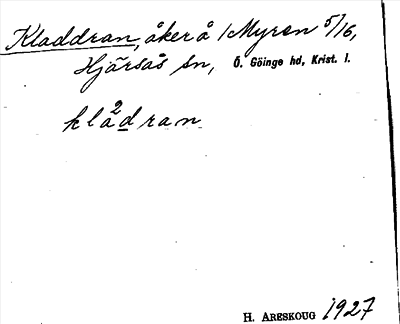 Kladdran, åker å 1 Myren 5/16,
Hjärsås sn, Ö. Göinge hd, Krist. l.
kla2dran
H. ARESKOUG 1927